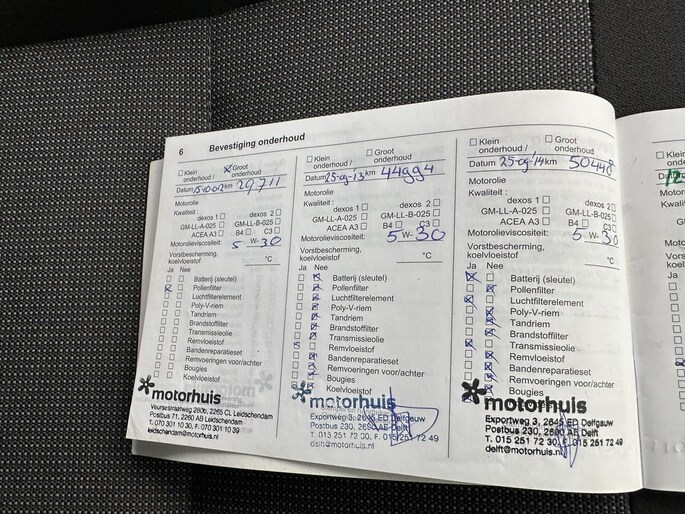 6 Bevestiging onderhoud
Klein onderhoud / Groot onderhoud
Datum 15-10-012 km 29711
Motorolie
Kwaliteit :
dexos 1 dexos 2
GM-LL-A-025 GM-LL-B-025
ACEA A3 B4 C3
Motorolieviscositeit: 5 W- 30
Vorstbescherming, koelvloeistof °C
Ja Nee
Batterij (sleutel)
Pollenfilter
Luchtfilterelement
Poly-V-riem
Tandriem
Brandstoffilter
Transmissieolie
Remvloeistof
Bandenreparatieset
Remvoeringen voor/achter
Bougies
Koelvloeistof
motorhuis
Veursestraatweg 280b, 2265 CL Leidschendam
Postbus 71, 2260 AB Leidschendam
T. 070 301 10 30, F. 070 301 10 39
leidschendam@motorhuis.nl
Klein onderhoud / Groot onderhoud
Datum 25-09-'13 km 44994
Motorolie
Kwaliteit :
dexos 1 dexos 2
GM-LL-A-025 GM-LL-B-025
ACEA A3 B4 C3
Motorolieviscositeit: 5 W- 30
Vorstbescherming, koelvloeistof °C
Ja Nee
Batterij (sleutel)
Pollenfilter
Luchtfilterelement
Poly-V-riem
Tandriem
Brandstoffilter
Transmissieolie
Remvloeistof
Bandenreparatieset
Remvoeringen voor/achter
Bougies
Koelvloeistof
motorhuis
Exportweg 3, 2645 ED Delfgauw
Postbus 230, 2600 AE Delft
T. 015 251 72 30, F. 015 251 72 49
delft@motorhuis.nl
Klein onderhoud / Groot onderhoud
Datum 25-09-'14 km 50448
Motorolie
Kwaliteit :
dexos 1 dexos 2
GM-LL-A-025 GM-LL-B-025
ACEA A3 B4 C3
Motorolieviscositeit: 5 W- 30
Vorstbescherming, koelvloeistof °C
Ja Nee
Batterij (sleutel)
Pollenfilter
Luchtfilterelement
Poly-V-riem
Tandriem
Brandstoffilter
Transmissieolie
Remvloeistof
Bandenreparatieset
Remvoeringen voor/achter
Bougies
motorhuis
Exportweg 3, 2645 ED Delfgauw
Postbus 230, 2600 AE Delft
T. 015 251 72 30, F. 015 251 72 49
delft@motorhuis.nl